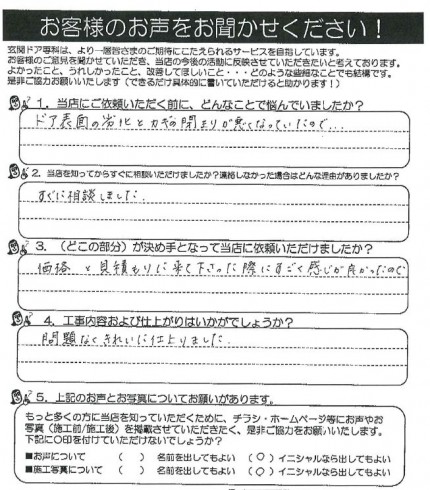 お客様のお声をお聞かせください！
玄関ドア専科は、より一層皆さまのご期待にこたえられるサービスを目指しています。
お客様のご意見を聞かせていただき、当店の今後の活動に反映させていただきたいと考えております。
よかったこと、うれしかったこと、改善してほしいこと・・・どのような些細なことでも結構です。
是非ご協力お願いいたします（できるだけ具体的に書いていただけると助かります！）
1. 当店にご依頼いただく前に、どんなことで悩んでいましたか？
ドア表面の劣化とカギの閉まりが悪くなっていたので...
2. 当店を知ってからすぐに相談いただけましたか？連絡しなかった場合はどんな理由がありましたか？
すぐに相談しました.
3. （どこの部分）が決め手となって当店に依頼いただけましたか？
価格と見積もりに来て下さった際にすごく感じが良かったので
4. 工事内容および仕上がりはいかがでしょうか？
問題なくきれいに仕上りました.
5. 上記のお声とお写真についてお願いがあります。
もっと多くの方に当店を知っていただくために、チラシ・ホームページ等にお声やお
写真（施工前/施工後）を掲載させていただきたく、是非ご協力をお願いいたします。
下記に〇印を付けていただけないでしょうか？
■お声について （ ） 名前を出してもよい （〇）イニシャルなら出してもよい
■施工写真について （ ） 名前を出してもよい （〇）イニシャルなら出してもよい